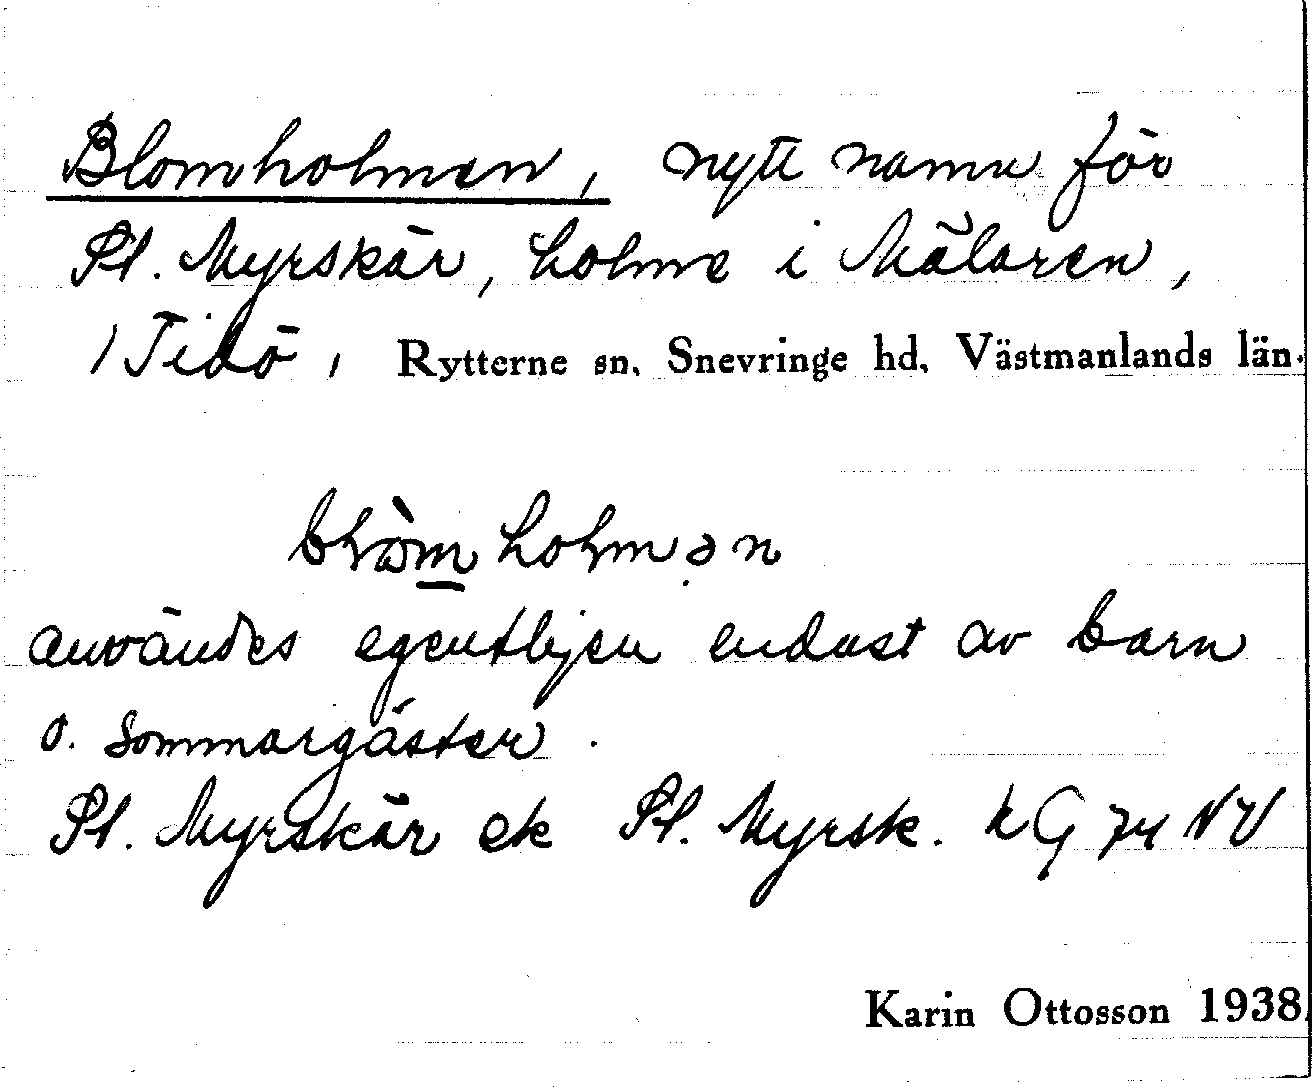 Blomholmen, nytt namn för
St. Myrskär, holme i Mälaren,
/ Tidö, Rytterne sn, Snevringe hd, Västmanlands län.
användes egentligen endast av barn
o. sommargäster.
St. Myrskär ek St. Myrsk. k G 74 NV
Karin Ottosson 1938.